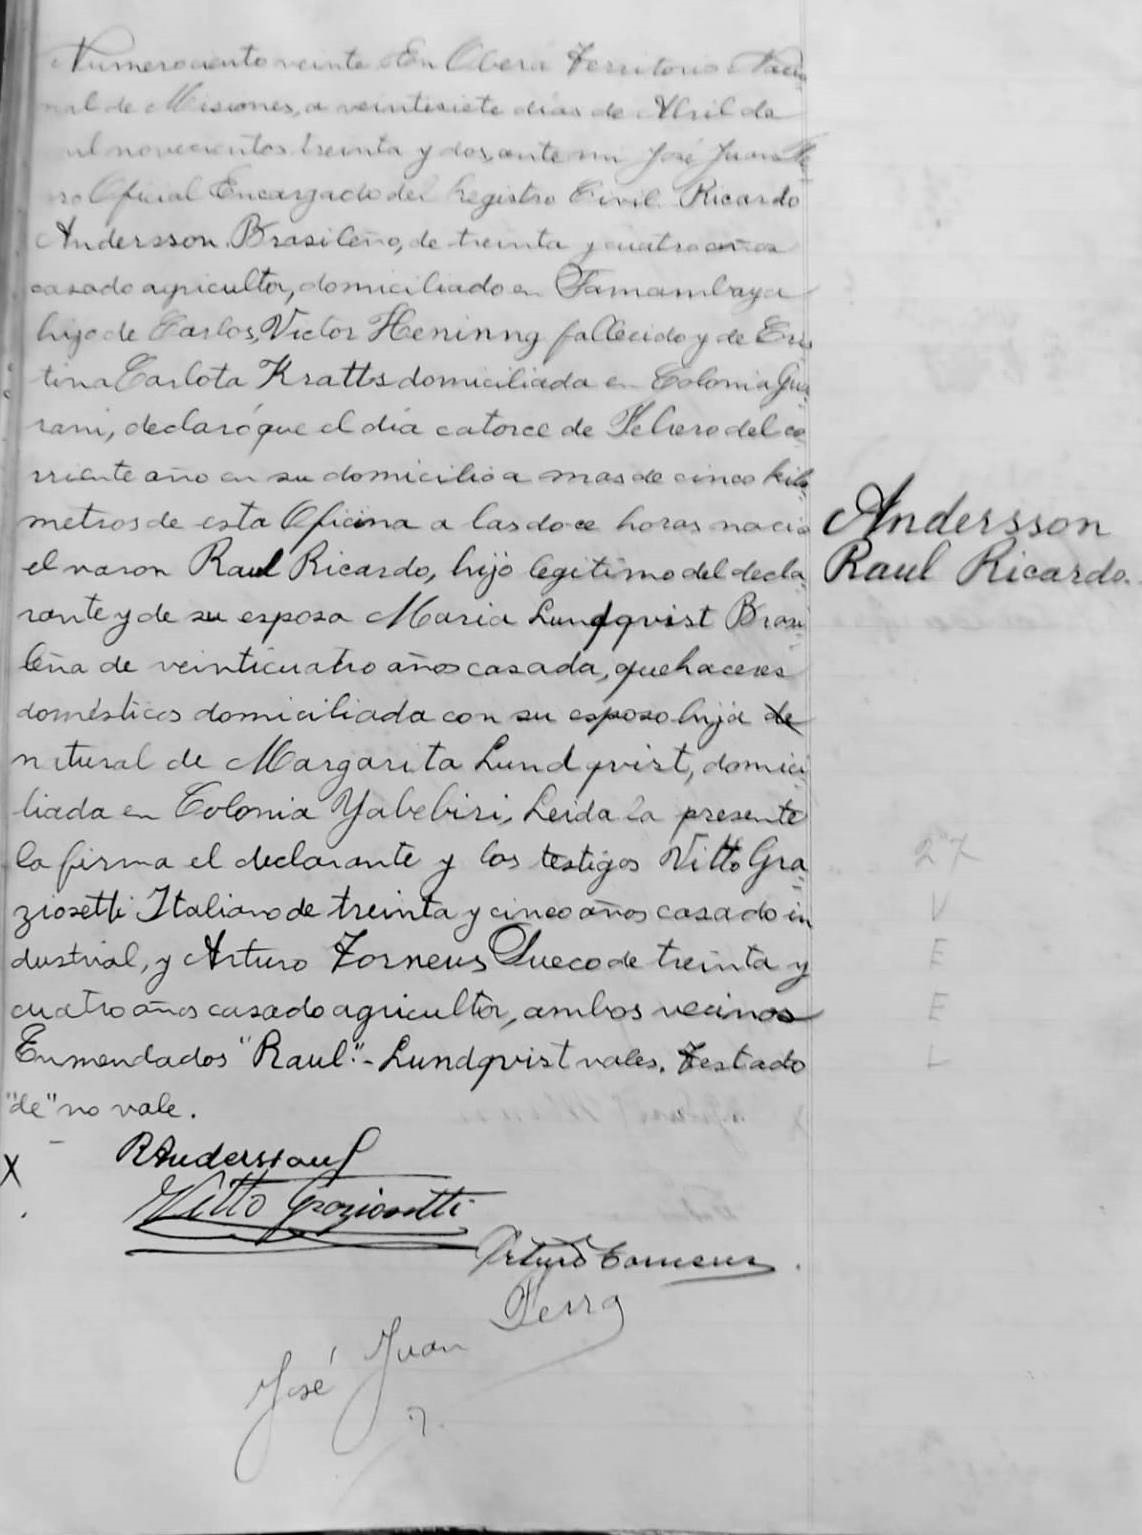 Numero ciento veinte En Oberá Territorio Nacio
nal de Misiones, a veintisiete dias de Abril de
mil novecientos treinta y dos, ante mi José Juan Fe
rro Oficial Encargado del Registro Civil Ricardo
Andersson Brasileño, de treinta y cuatro años
casado agricultor, domiciliado en Tamambaya
hijo de Carlos, Victor Heninng fallecido y de Cris
tina Carlota Kratts domiciliada en Colonia Gua
rani, declaró que el dia catorce de Febrero del co
rriente año en su domicilio a mas de cinco kilo
metros de esta Oficina a las doce horas nació
el varon Raul Ricardo, hijo legitimo del decla
rante y de su esposa Maria Lundqvist Brasi
leña de veinticuatro años casada, quehaceres
domésticos domiciliada con su esposo hija de
natural de Margarita Lundqvist, domici
liada en Colonia Yabebiri, Leida la presente
la firma el declarante y los testigos Vitto Gra
ziosetti Italiano de treinta y cinco años casado in
dustrial, y Arturo Torneus Sueco de treinta y
cuatro años casado agricultor, ambos vecinos
Enmendados "Raul".- Lundqvist vales. Testado
"de" no vale.
Andersson
Raul Ricardo.
27
V
E
E
L
X
RAndersson
Vitto Graziosetti
Arturo Torneus
José Juan Ferro